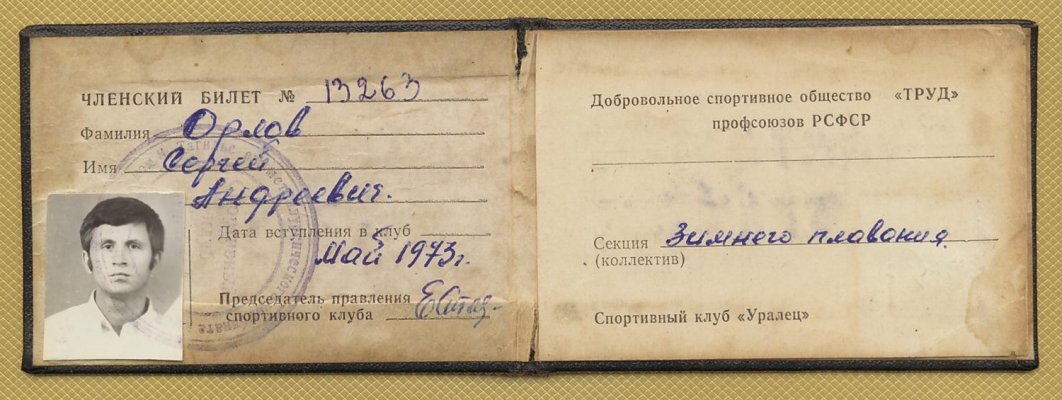 ЧЛЕНСКИЙ БИЛЕТ № 13263
Фамилия Орлов
Имя Сергей
Андреевич.
Дата вступления в клуб
Май 1973г.
Председатель правления
спортивного клуба
Добровольное спортивное общество «ТРУД»
профсоюзов РСФСР
Секция Зимнего плавания
(коллектив)
Спортивный клуб «Уралец»